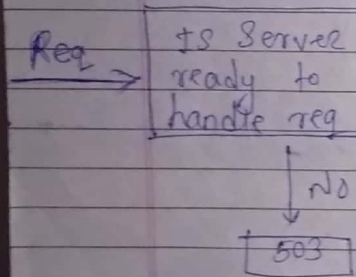 Req
Is Server
ready to
handle req
No
503